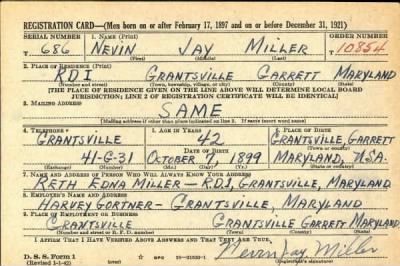 REGISTRATION CARD—(Men born on or after February 17, 1897 and on or before December 31, 1921)
SERIAL NUMBER 1. NAME (Print) ORDER NUMBER
U 686 NEVIN JAY MILLER 10854
(First) (Middle) (Last)
2. PLACE OF RESIDENCE (Print)
R D 1 GRANTSVILLE GARRETT MARYLAND
(Number and street) (Town, township, village, or city) (County) (State)
[THE PLACE OF RESIDENCE GIVEN ON THE LINE ABOVE WILL DETERMINE LOCAL BOARD
JURISDICTION; LINE 2 OF REGISTRATION CERTIFICATE WILL BE IDENTICAL]
3. MAILING ADDRESS
SAME
[Mailing address if other than place indicated on line 2. If same insert word same]
4. TELEPHONE 5. AGE IN YEARS 6. PLACE OF BIRTH
GRANTSVILLE 42 GRANTSVILLE, GARRETT
DATE OF BIRTH (Town or county)
41-G-31 OCTOBER 7, 1899 MARYLAND, U.S.A.
(Exchange) (Number) (Mo.) (Day) (Yr.) (State or country)
7. NAME AND ADDRESS OF PERSON WHO WILL ALWAYS KNOW YOUR ADDRESS
RETH EDNA MILLER — R.D.1, GRANTSVILLE, MARYLAND
8. EMPLOYER'S NAME AND ADDRESS
HARVEY GORTNER — GRANTSVILLE, MARYLAND
9. PLACE OF EMPLOYMENT OR BUSINESS
GRANTSVILLE GRANTSVILLE GARRETT MARYLAND
(Number and street or R. F. D. number) (Town) (County) (State)
I AFFIRM THAT I HAVE VERIFIED ABOVE ANSWERS AND THAT THEY ARE TRUE.
D. S. S. Form 1
(Revised 1-1-42) GPO Nevin Jay Miller
(Registrant's signature)